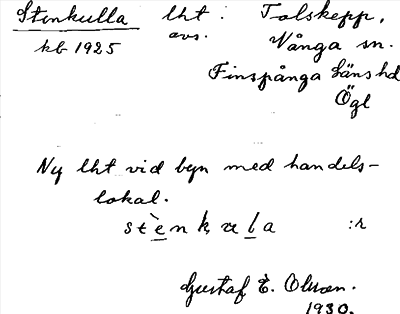 Stenkulla lht i Tolskepp,
kb 1925 avs. Vånga sn.
Finspånga läns hd
Ögl
Ny lht vid byn med handels-
lokal.
stènkula :r
Gustaf E. Olsson.
1930.